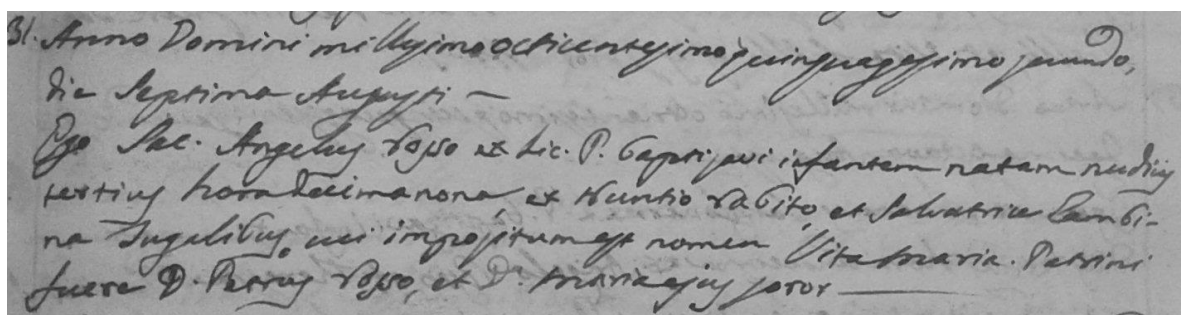 31. Anno Domini millesimo octicentesimo quinquagesimo secundo,
die septima Augusti —
Ego Sac. Angelus Rosso ex Lic. P. baptisavi infantem natam nudius
tertius hora decimanona, ex Nuntio Rabito, et Salvatrice Cambi-
na Jugalibus, cui impositum est nomen Vita Maria. Patrini
fuere D. Petrus Rosso, et D.ª Maria ejus soror —